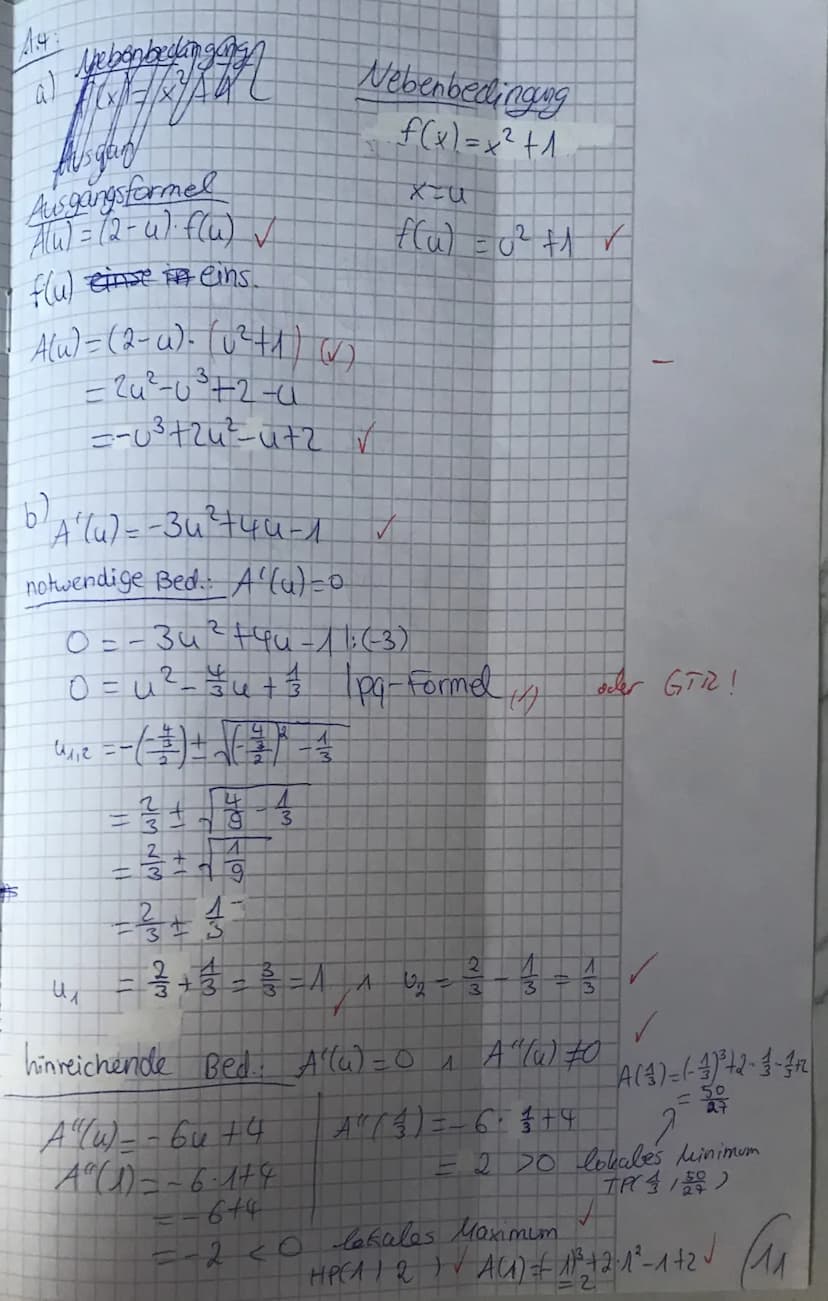 1.4:
a) Nebenbedingung
f(x)=x²+1
Ausgan
Nebenbedingung
f(x)=x²+1
x=u
f(u)=u²+1 ✓
Ausgangsformel
A(u)=(2-u)·f(u) ✓
f(u) einse in eins.
A(u)=(2-u)·(u²+1) (✓)
=2u²-u³+2-u
=-u³+2u²-u+2 ✓
b) A'(u)=-3u²+4u-1 ✓
notwendige Bed.: A'(u)=0
0=-3u²+4u-1 |:(-3)
0=u²-4/3u+1/3 |pq-Formel (✓) oder GTR!
u₁,₂=-(-4/3/2)±√((-4/3/2)²-1/3)
=2/3±√(4/9-1/3)
=2/3±√(1/9)
=2/3±1/3
u₁=2/3+1/3=3/3=1 ✓ ∧ u₂=2/3-1/3=1/3 ✓
hinreichende Bed.: A'(u)=0 ∧ A''(u)≠0 ✓
A''(u)=-6u+4
A''(1)=-6·1+4
=-6+4
=-2<0 lokales Maximum ✓
HP(1|2) ✓ A(1)=(-1)³+2·1²-1+2 ✓
=2
A''(1/3)=-6·1/3+4
=2>0 lokales Minimum
TP(1/3|50/27)
A(1/3)=(-1/3)³+2·1/3-1/3+2
=50/27
(11